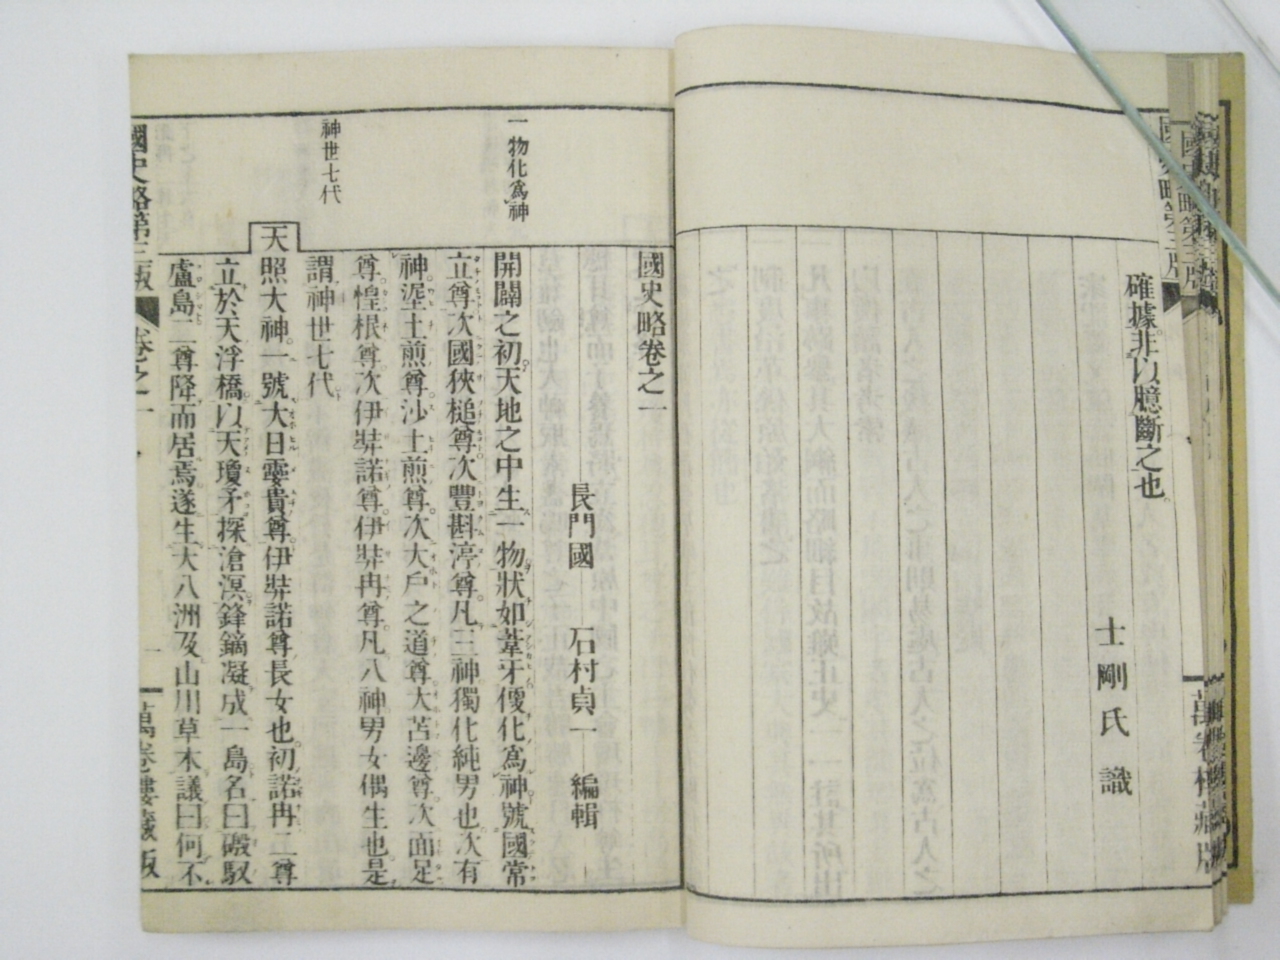 確據非以臆斷之也
士剛氏識
萬卷樓藏版
國史略卷之一
長門國　石村貞一　編輯
一物化爲神
開闢之初天地之中生一物狀如葦牙便化爲神號國常
立尊次國狹槌尊次豐斟渟尊凡三神獨化純男也次有
神埿土煎尊沙土煎尊次大戶之道尊大苫邊尊次面足
尊惶根尊次伊弉諾尊伊弉冉尊凡八神男女偶生也是
神世七代
謂神世七代
天照大神一號大日孁貴尊伊弉諾尊長女也初諾冉二尊
立於天浮橋以天瓊矛探滄溟鋒鏑凝成一島名曰磤馭
盧島二尊降而居焉遂生大八洲及山川草木議曰何不
國史略第三版　卷之一　一　萬卷樓藏版